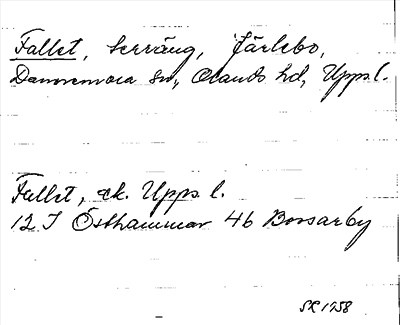 Fallet, terräng, Järlebo,
Dannemora sn, Olands hd, Upps. l.
Fallet, ek. Upps. l.
12 I Östhammar 4b Borsarby
SK 1958